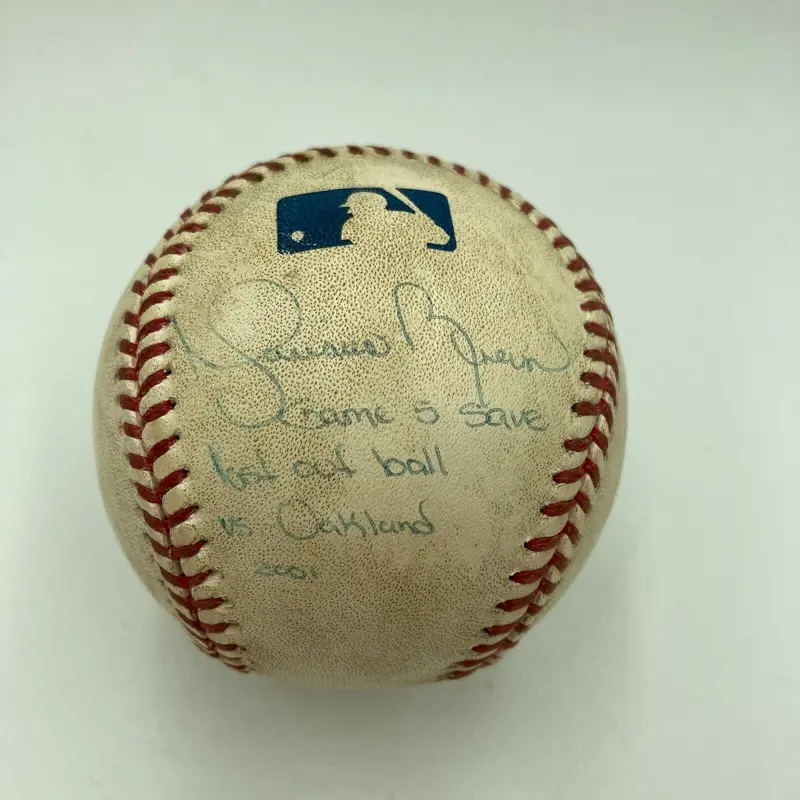 Mariano Rivera
Game 5 Save
last out ball
vs Oakland
2001